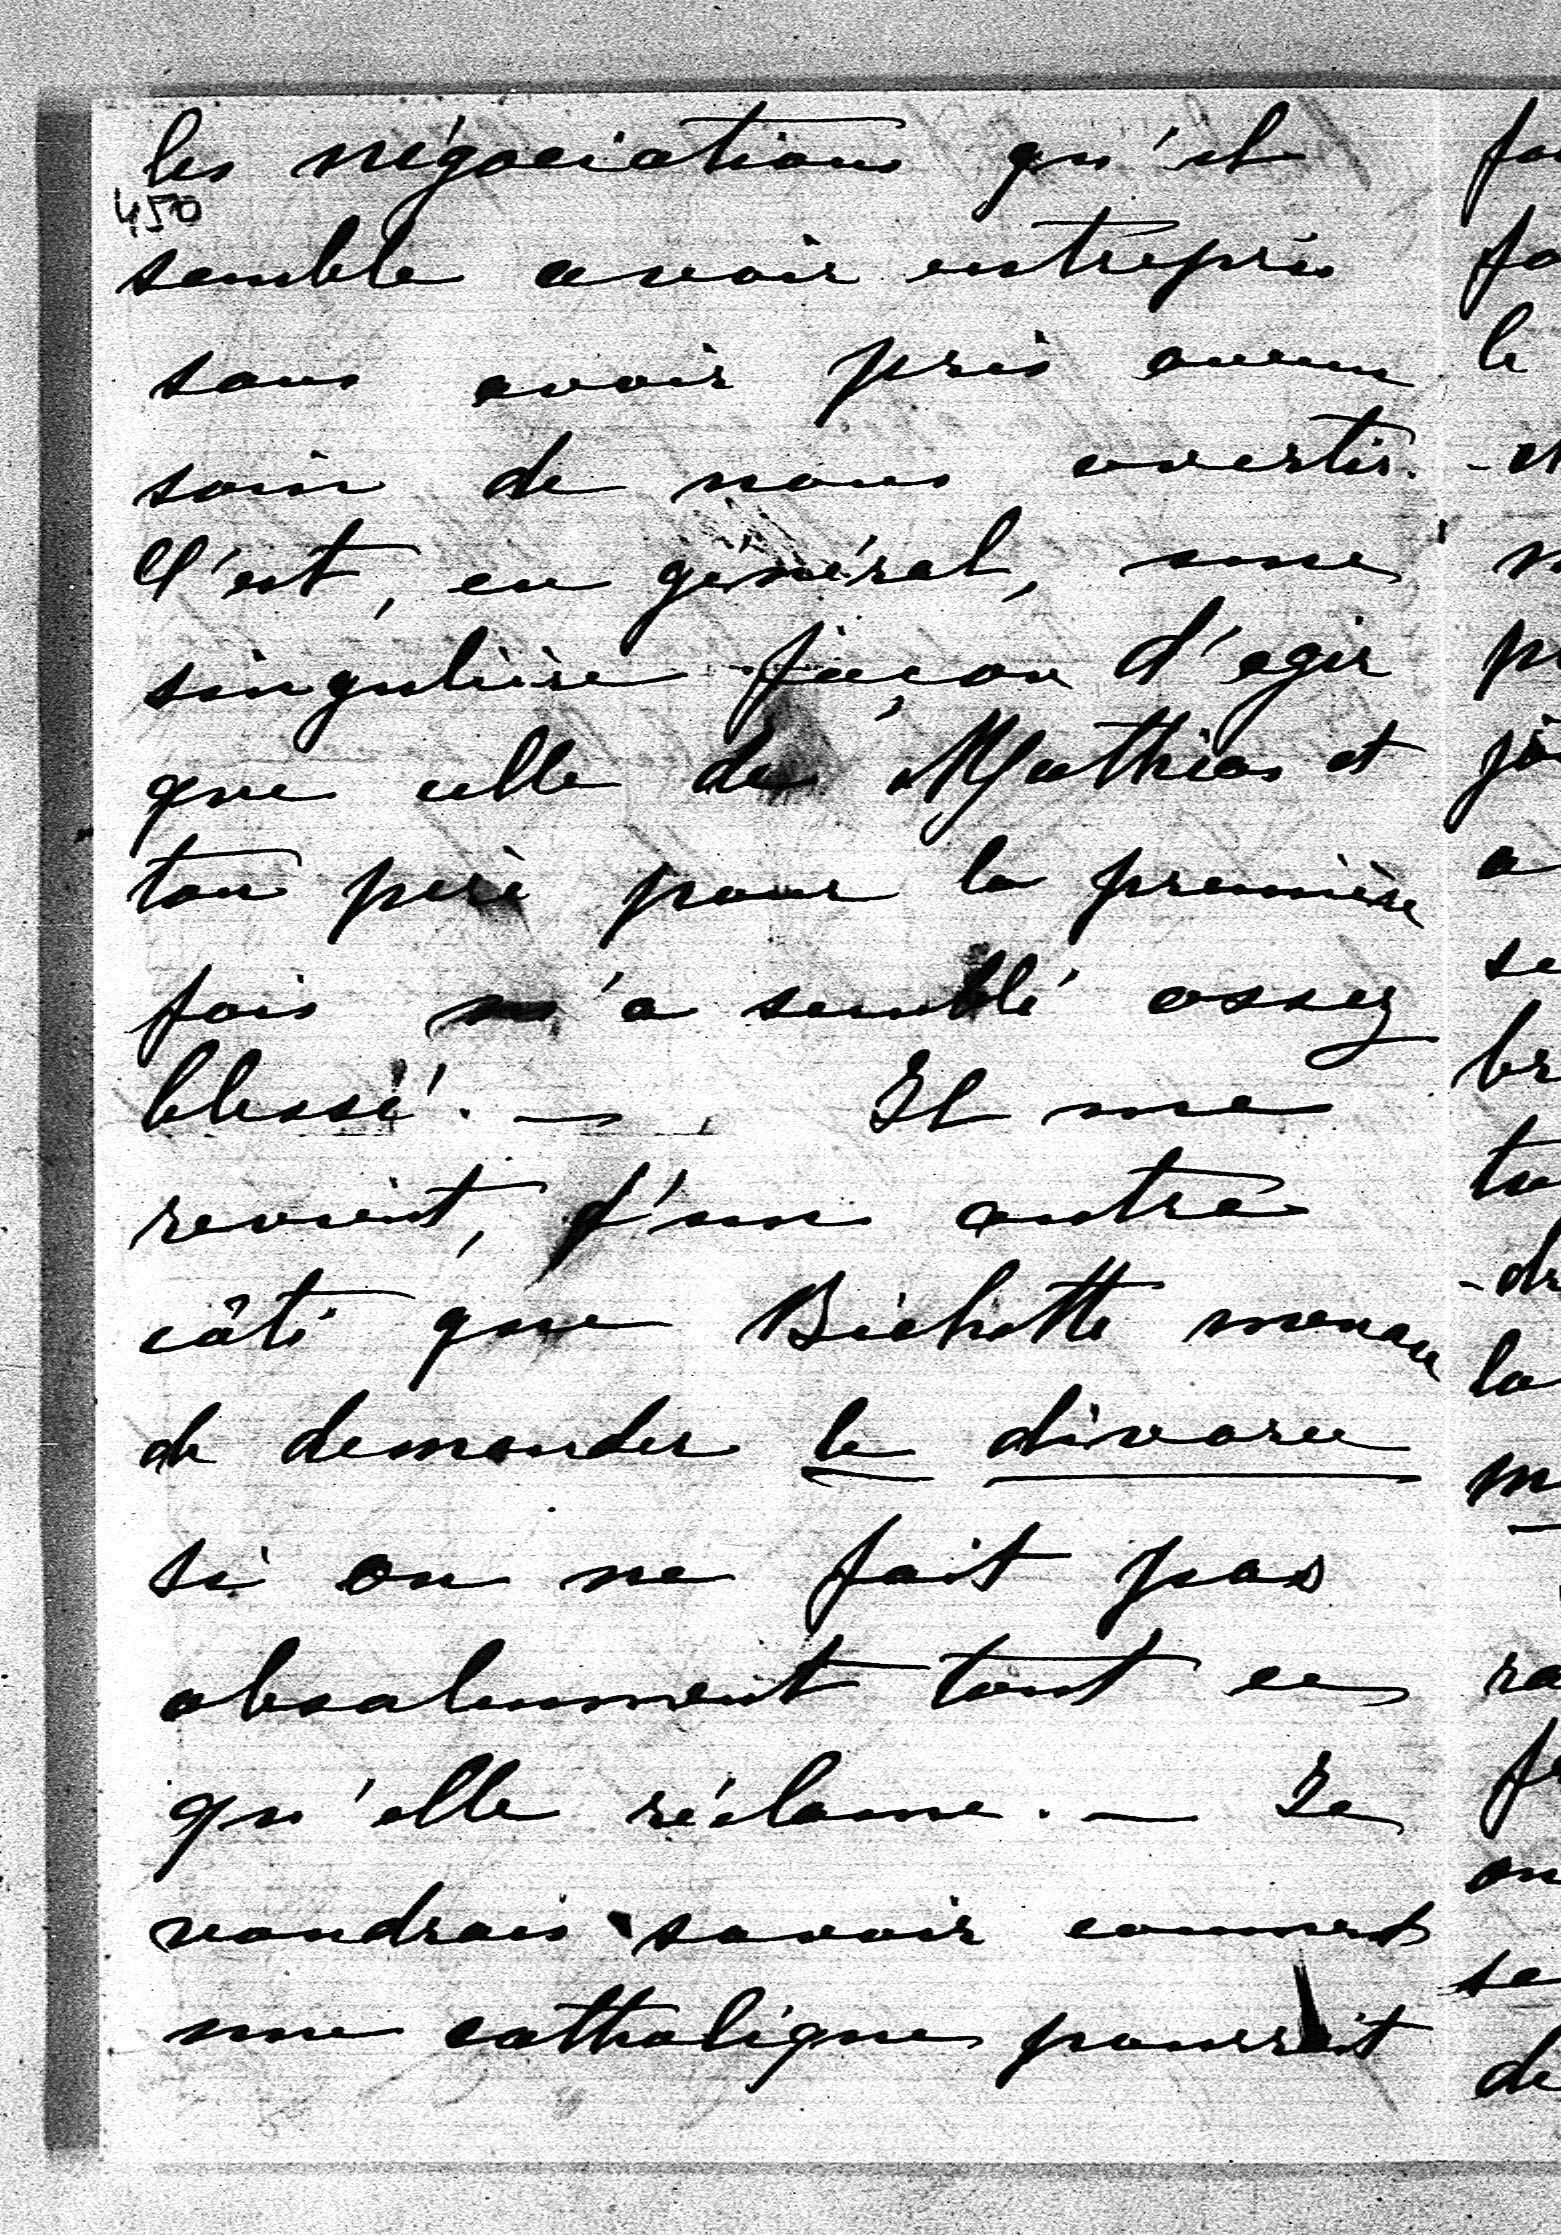 les négociations qu'il
450
semble avoir entrepris
sans avoir pris aucun
soin de nous avertir.
C'est, en général, une
singulière façon d'agir
que celle de Mathias et
ton père pour la première
fois m'a semblé assez
blessé. —  Il me
revient, d'un autre
côté que Bichette menace
de demander le divorce
si on ne fait pas
absolument tout ce
qu'elle réclame. — Je
voudrais savoir comment
une catholique pourrait